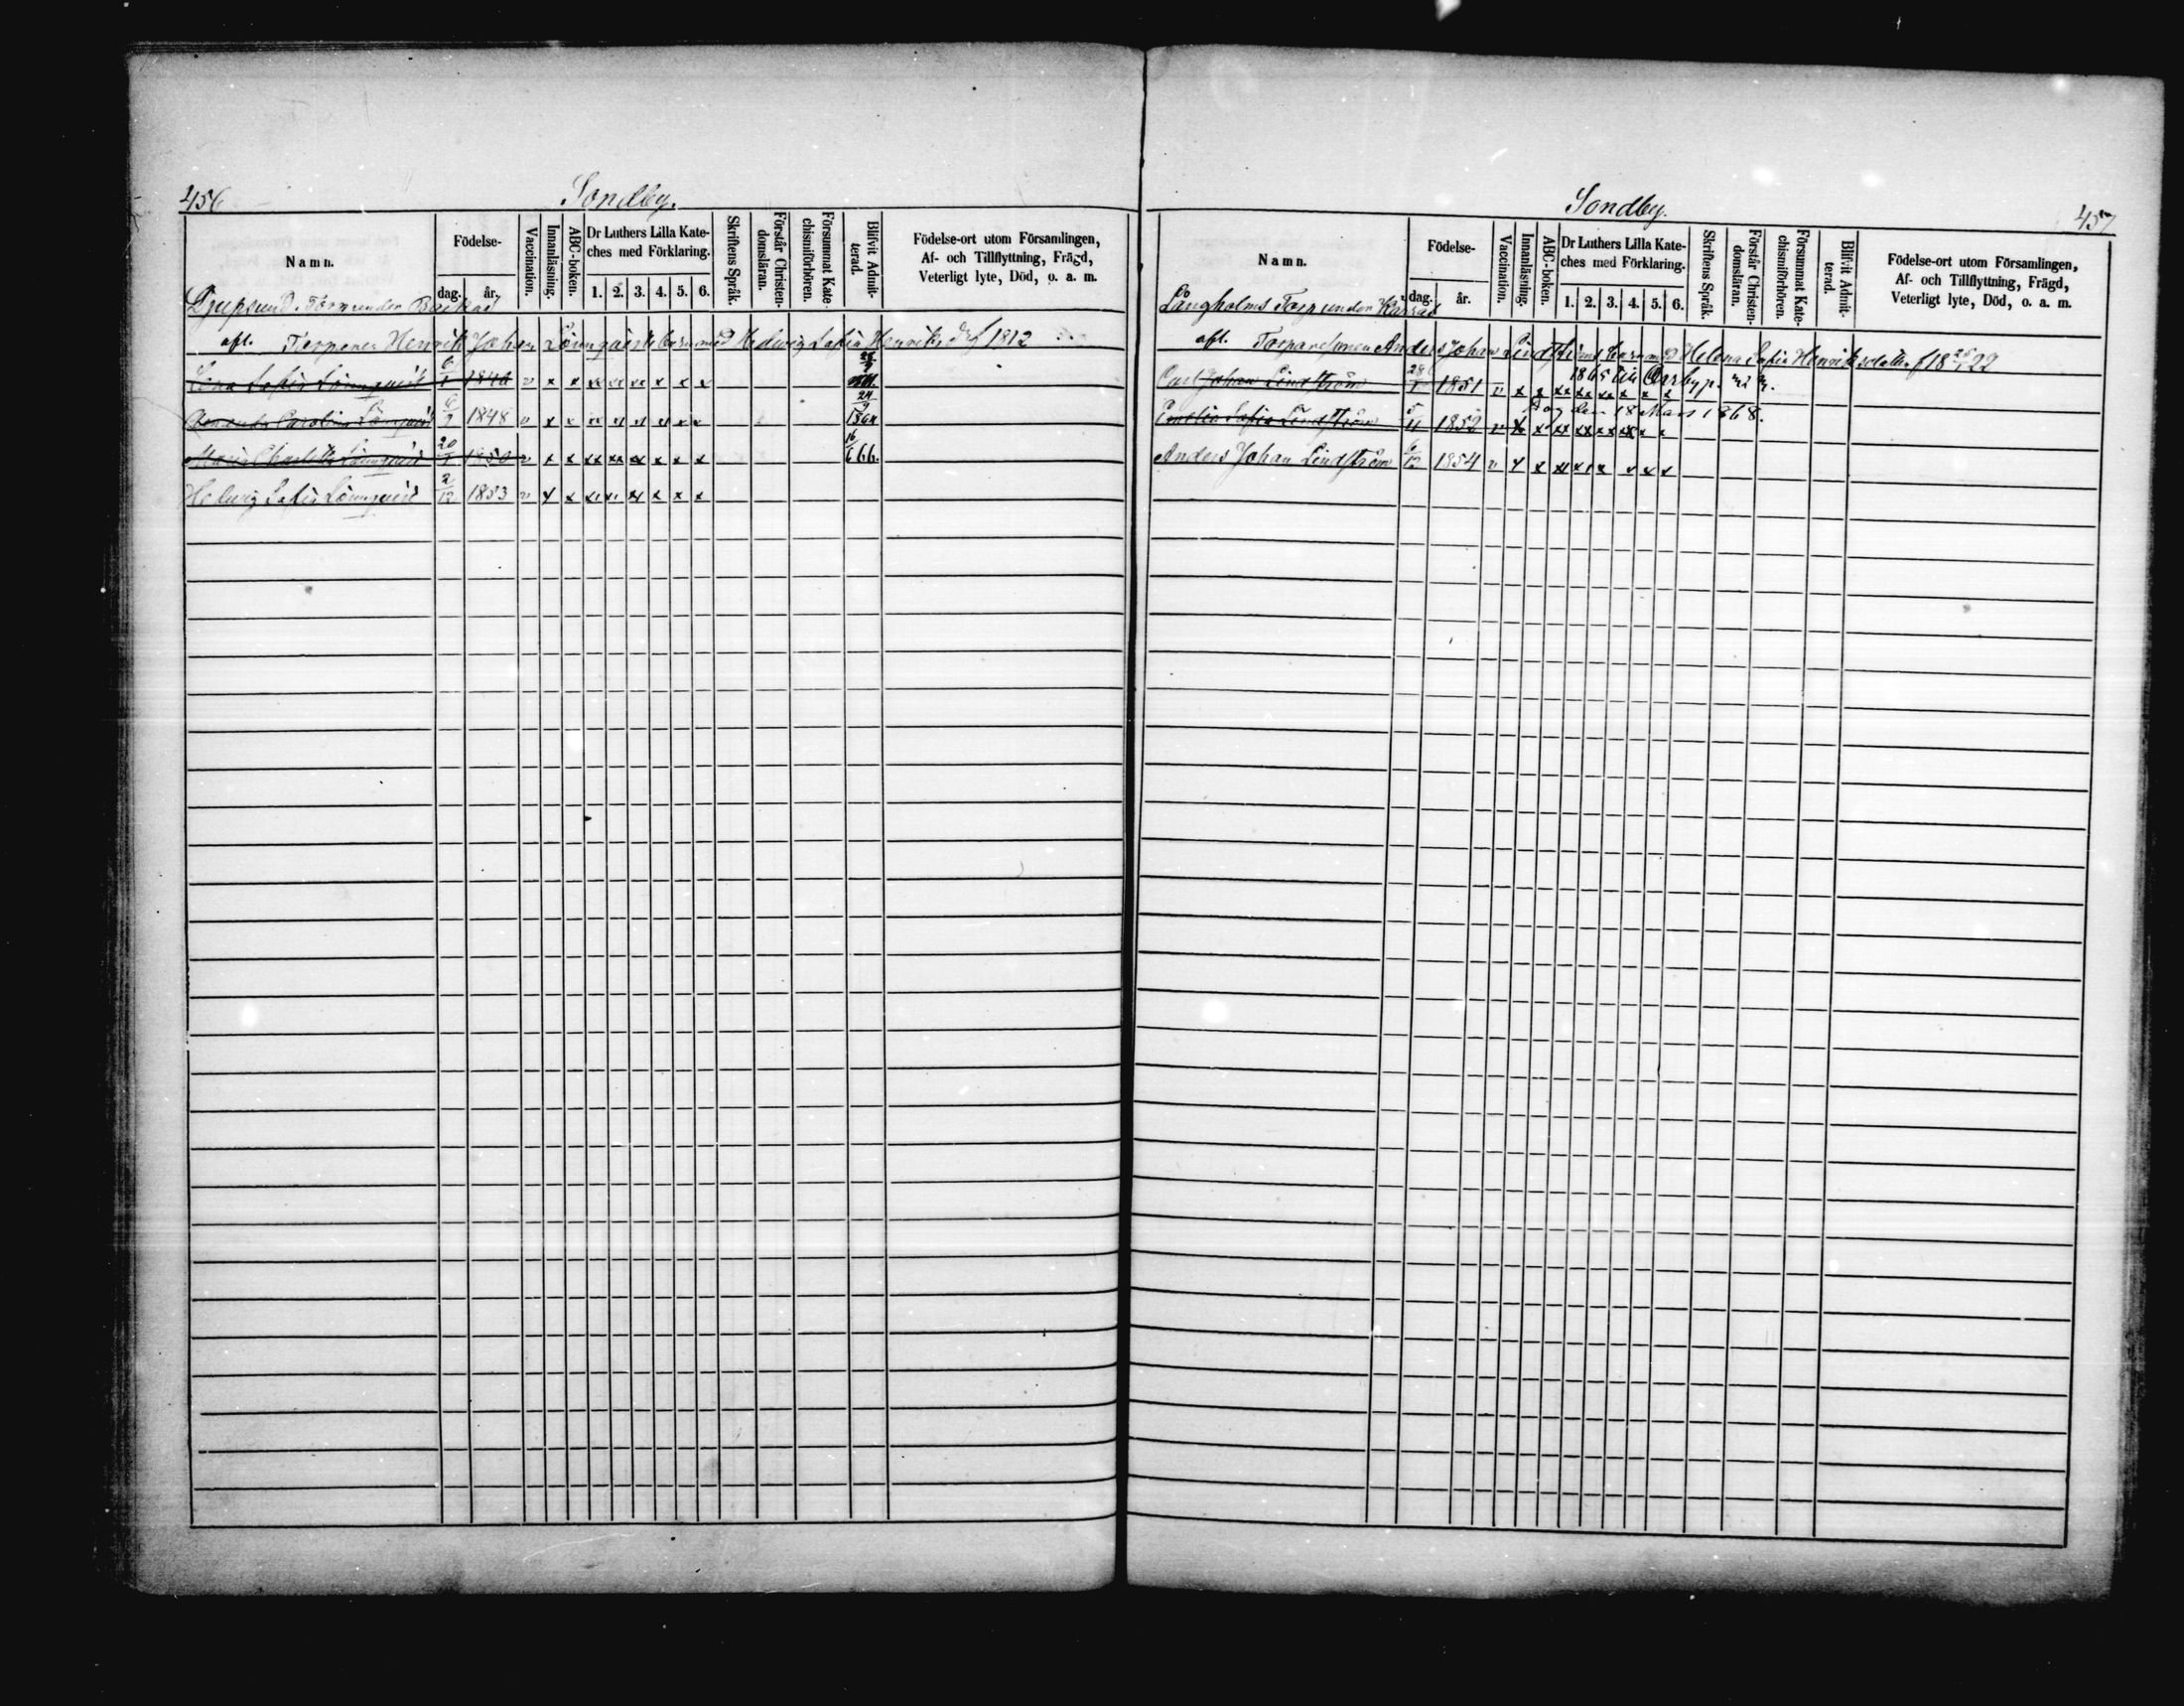 456
Sondby.
Namn.
Födelse-
dag. år.
Vaccination.
Innanläsning.
ABC-boken.
Dr Luthers Lilla Kate-
ches med Förklaring.
1. 2. 3. 4. 5. 6.
Skriftens Språk.
Förstår Christen-
domsläran.
Försummat Kate-
chismiförhören.
Blifvit Admit-
terad.
Födelse-ort utom Församlingen,
Af- och Tillflyttning, Frägd,
Veterligt lyte, Död, o. a. m.
Djupsund. Torp under
afl. Torparen Henrik Johan Lönnquists barn med Hedwig Sofia Henriksd. f 1812
Sofia Lönnquist 1846 v x x xx xx xx x x x
Carolina Lönnquist 1848 v x x x x 24/9 1864
Maria Charlotta Lönnquist 20/1 1850 v x x xx xx xx x x x 16/6 66.
Hedwig Sofia Lönnquist 2/12 1853 v x x x x x
457
Sondby.
Namn.
Födelse-
dag. år.
Vaccination.
Innanläsning.
ABC-boken.
Dr Luthers Lilla Kate-
ches med Förklaring.
1. 2. 3. 4. 5. 6.
Skriftens Språk.
Förstår Christen-
domsläran.
Försummat Kate-
chismiförhören.
Blifvit Admit-
terad.
Födelse-ort utom Församlingen,
Af- och Tillflyttning, Frägd,
Veterligt lyte, Död, o. a. m.
Långholms Torp under
afl. Anders Johan Lindströms barn med Helena Sofia Henriksdotter f 18 22
1865 till
Carl Johan Lindström 28/1 1851 v x x xx xx xx x x x
Dog den 18 Mars 1868.
Emelia Sofia Lindström 1852 v x x xx xx x x x x x
Anders Johan Lindström 1854 v x x x x x x x x